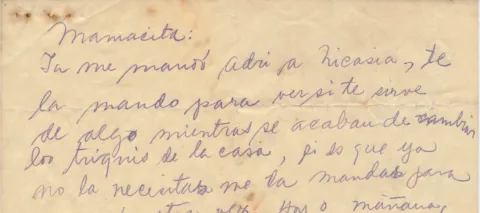 Mamacita:
Ya me mandó Adri a Nicasia, te
la mando para ver si te sirve
de algo mientras se acaban de cambiar
los triquis de la casa, si es que ya
no la necesitas me la mandas para
Hoy o mañana,